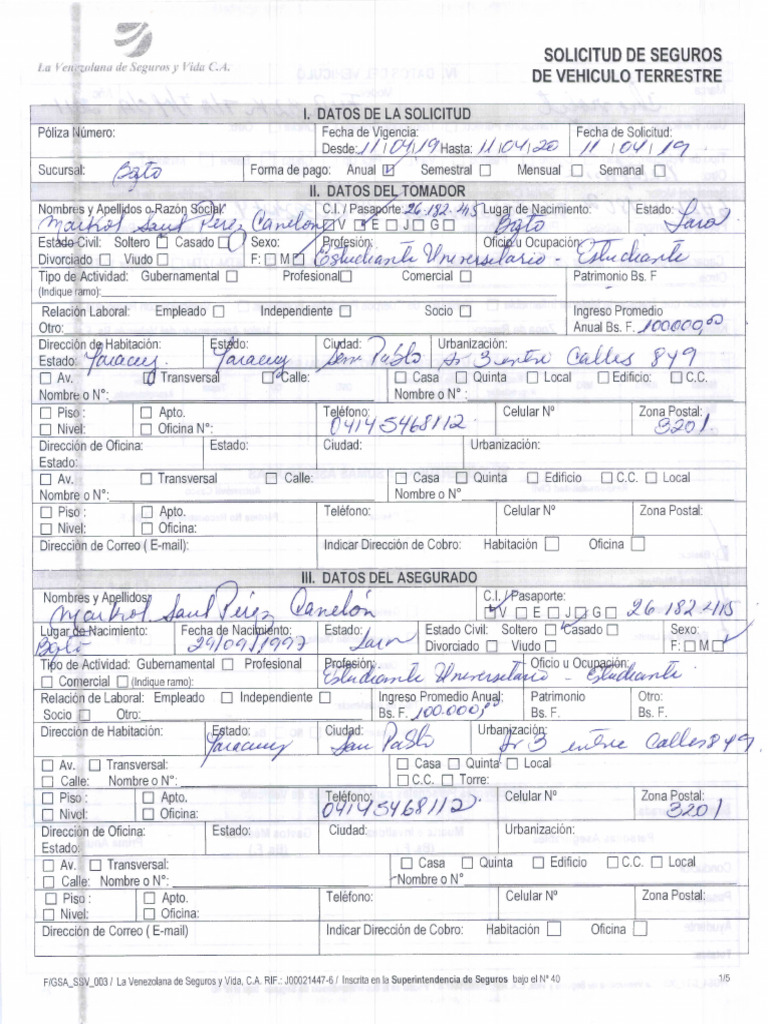 La Venezolana de Seguros y Vida C.A.
SOLICITUD DE SEGUROS
DE VEHICULO TERRESTRE
I. DATOS DE LA SOLICITUD
Póliza Número: Fecha de Vigencia: Fecha de Solicitud:
Desde: 11/04/19 Hasta: 11/04/20 11/04/19
Sucursal: Bqto Forma de pago: Anual Semestral Mensual Semanal
II. DATOS DEL TOMADOR
Nombres y Apellidos o Razón Social: C.I. / Pasaporte: 26.182.415 Lugar de Nacimiento: Estado:
Saul Pérez Canelón V E J G Bqto Lara
Estado Civil: Soltero Casado Sexo: Profesión: Oficio u Ocupación:
Divorciado Viudo F: M Estudiante Universitario - Estudiante
Tipo de Actividad: Gubernamental Profesional Comercial Patrimonio Bs. F
(Indique ramo):
Relación Laboral: Empleado Independiente Socio Ingreso Promedio
Otro: Anual Bs. F. 100000,00
Dirección de Habitación: Estado: Ciudad: Urbanización:
Estado: Yaracuy. Yaracuy San Pablo Av 3 entre Calles 8 y 9
Av. Transversal Calle: Casa Quinta Local Edificio: C.C.
Nombre o N°: Nombre o N° :
Piso : Apto. Teléfono: Celular Nº Zona Postal:
Nivel: Oficina N°: 04145468112. 3201
Dirección de Oficina: Estado: Ciudad: Urbanización:
Estado:
Av. Transversal Calle: Casa Quinta Edificio C.C. Local
Nombre o N° Nombre o N°
Piso : Apto. Teléfono: Celular Nº Zona Postal:
Nivel: Oficina:
Dirección de Correo ( E-mail): Indicar Dirección de Cobro: Habitación Oficina
III. DATOS DEL ASEGURADO
Nombres y Apellidos: C.I. / Pasaporte:
Saul Pérez Canelón V E J G 26.182.415
Lugar de Nacimiento: Fecha de Nacimiento: Estado: Estado Civil: Soltero Casado Sexo:
Bqto 29/09/1997 Lara Divorciado Viudo F: M
Tipo de Actividad: Gubernamental Profesional Profesión: Oficio u Ocupación:
Comercial (Indique ramo): Estudiante Universitario - Estudiante
Relación de Laboral: Empleado Independiente Ingreso Promedio Anual: Patrimonio Otro:
Socio Otro: Bs. F. 100.000,00 Bs. F. Bs.F.
Dirección de Habitación: Estado: Ciudad: Urbanización:
Yaracuy San Pablo Av 3 entre Calles 8 y 9.
Av. Transversal: Casa Quinta Local
Calle: Nombre o N°: C.C. Torre:
Piso : Apto. Teléfono: Celular Nº Zona Postal:
Nivel: Oficina: 04145468112 3201
Dirección de Oficina: Estado: Ciudad: Urbanización:
Estado:
Av. Transversal: Casa Quinta Edificio C.C. Local
Calle: Nombre o N°: Nombre o N°
Piso : Apto. Teléfono: Celular Nº Zona Postal:
Nivel: Oficina:
Dirección de Correo ( E-mail) Indicar Dirección de Cobro: Habitación Oficina
F/GSA_SSV_003 / La Venezolana de Seguros y Vida, C.A. RIF.: J00021447-6 / Inscrita en la Superintendencia de Seguros bajo el Nº 40 1/5